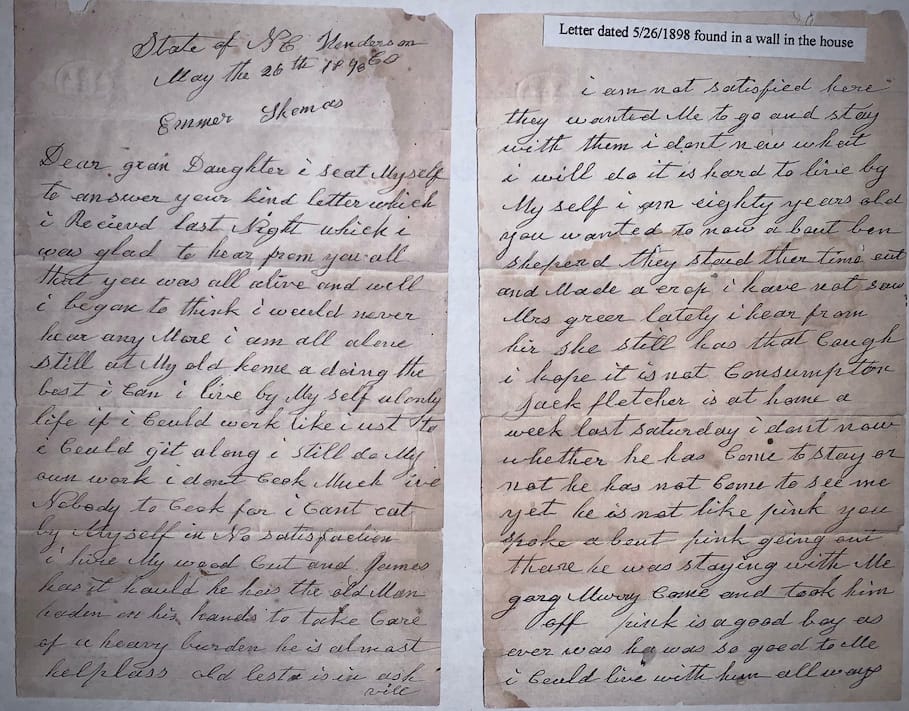 State of NC Henderson Co
May the 26 th 1898
Emmer Thomas
Dear gran Daughter i seat Myself
to answer your kind letter which
i Recievd last Night which i
was glad to hear from you all
that you was all alive and well
i began to think i would never
hear any More i am all alone
still at My old home a doing the
best i Can i live by My self a lonly
life if i Could work like i ust to
i Could git along i still do My
own work i dont Cook Much ive
Nobody to Cook for i Cant eat
by Myself in No satisfaction
i hire My wood Cut and James
has it hauld he has the old Man
haden on his hands to take Care
of a heavy burden he is almost
helpless old is in ash
vill
Letter dated 5/26/1898 found in a wall in the house
i am not satisfied here
they wanted Me to go and stay
with them i dont now what
i will do it is hard to live by
My self i am eighty years old
you wanted to now a bout ben
sheperd they staid ther time out
and Made a crop i have not saw
Mrs greer lately i hear from
hir she still has that Cough
i hope it is not Consumpton
Jack fletcher is at home a
week last saturday i dont now
whether he has Come to stay or
not he has not Come to see me
yet he is not like pink you
spoke a bout pink going out
thare he was staying with Me
gorg Murry Came and took him
off pink is a good boy as
ever was he was so good to Me
i Could live with him all ways